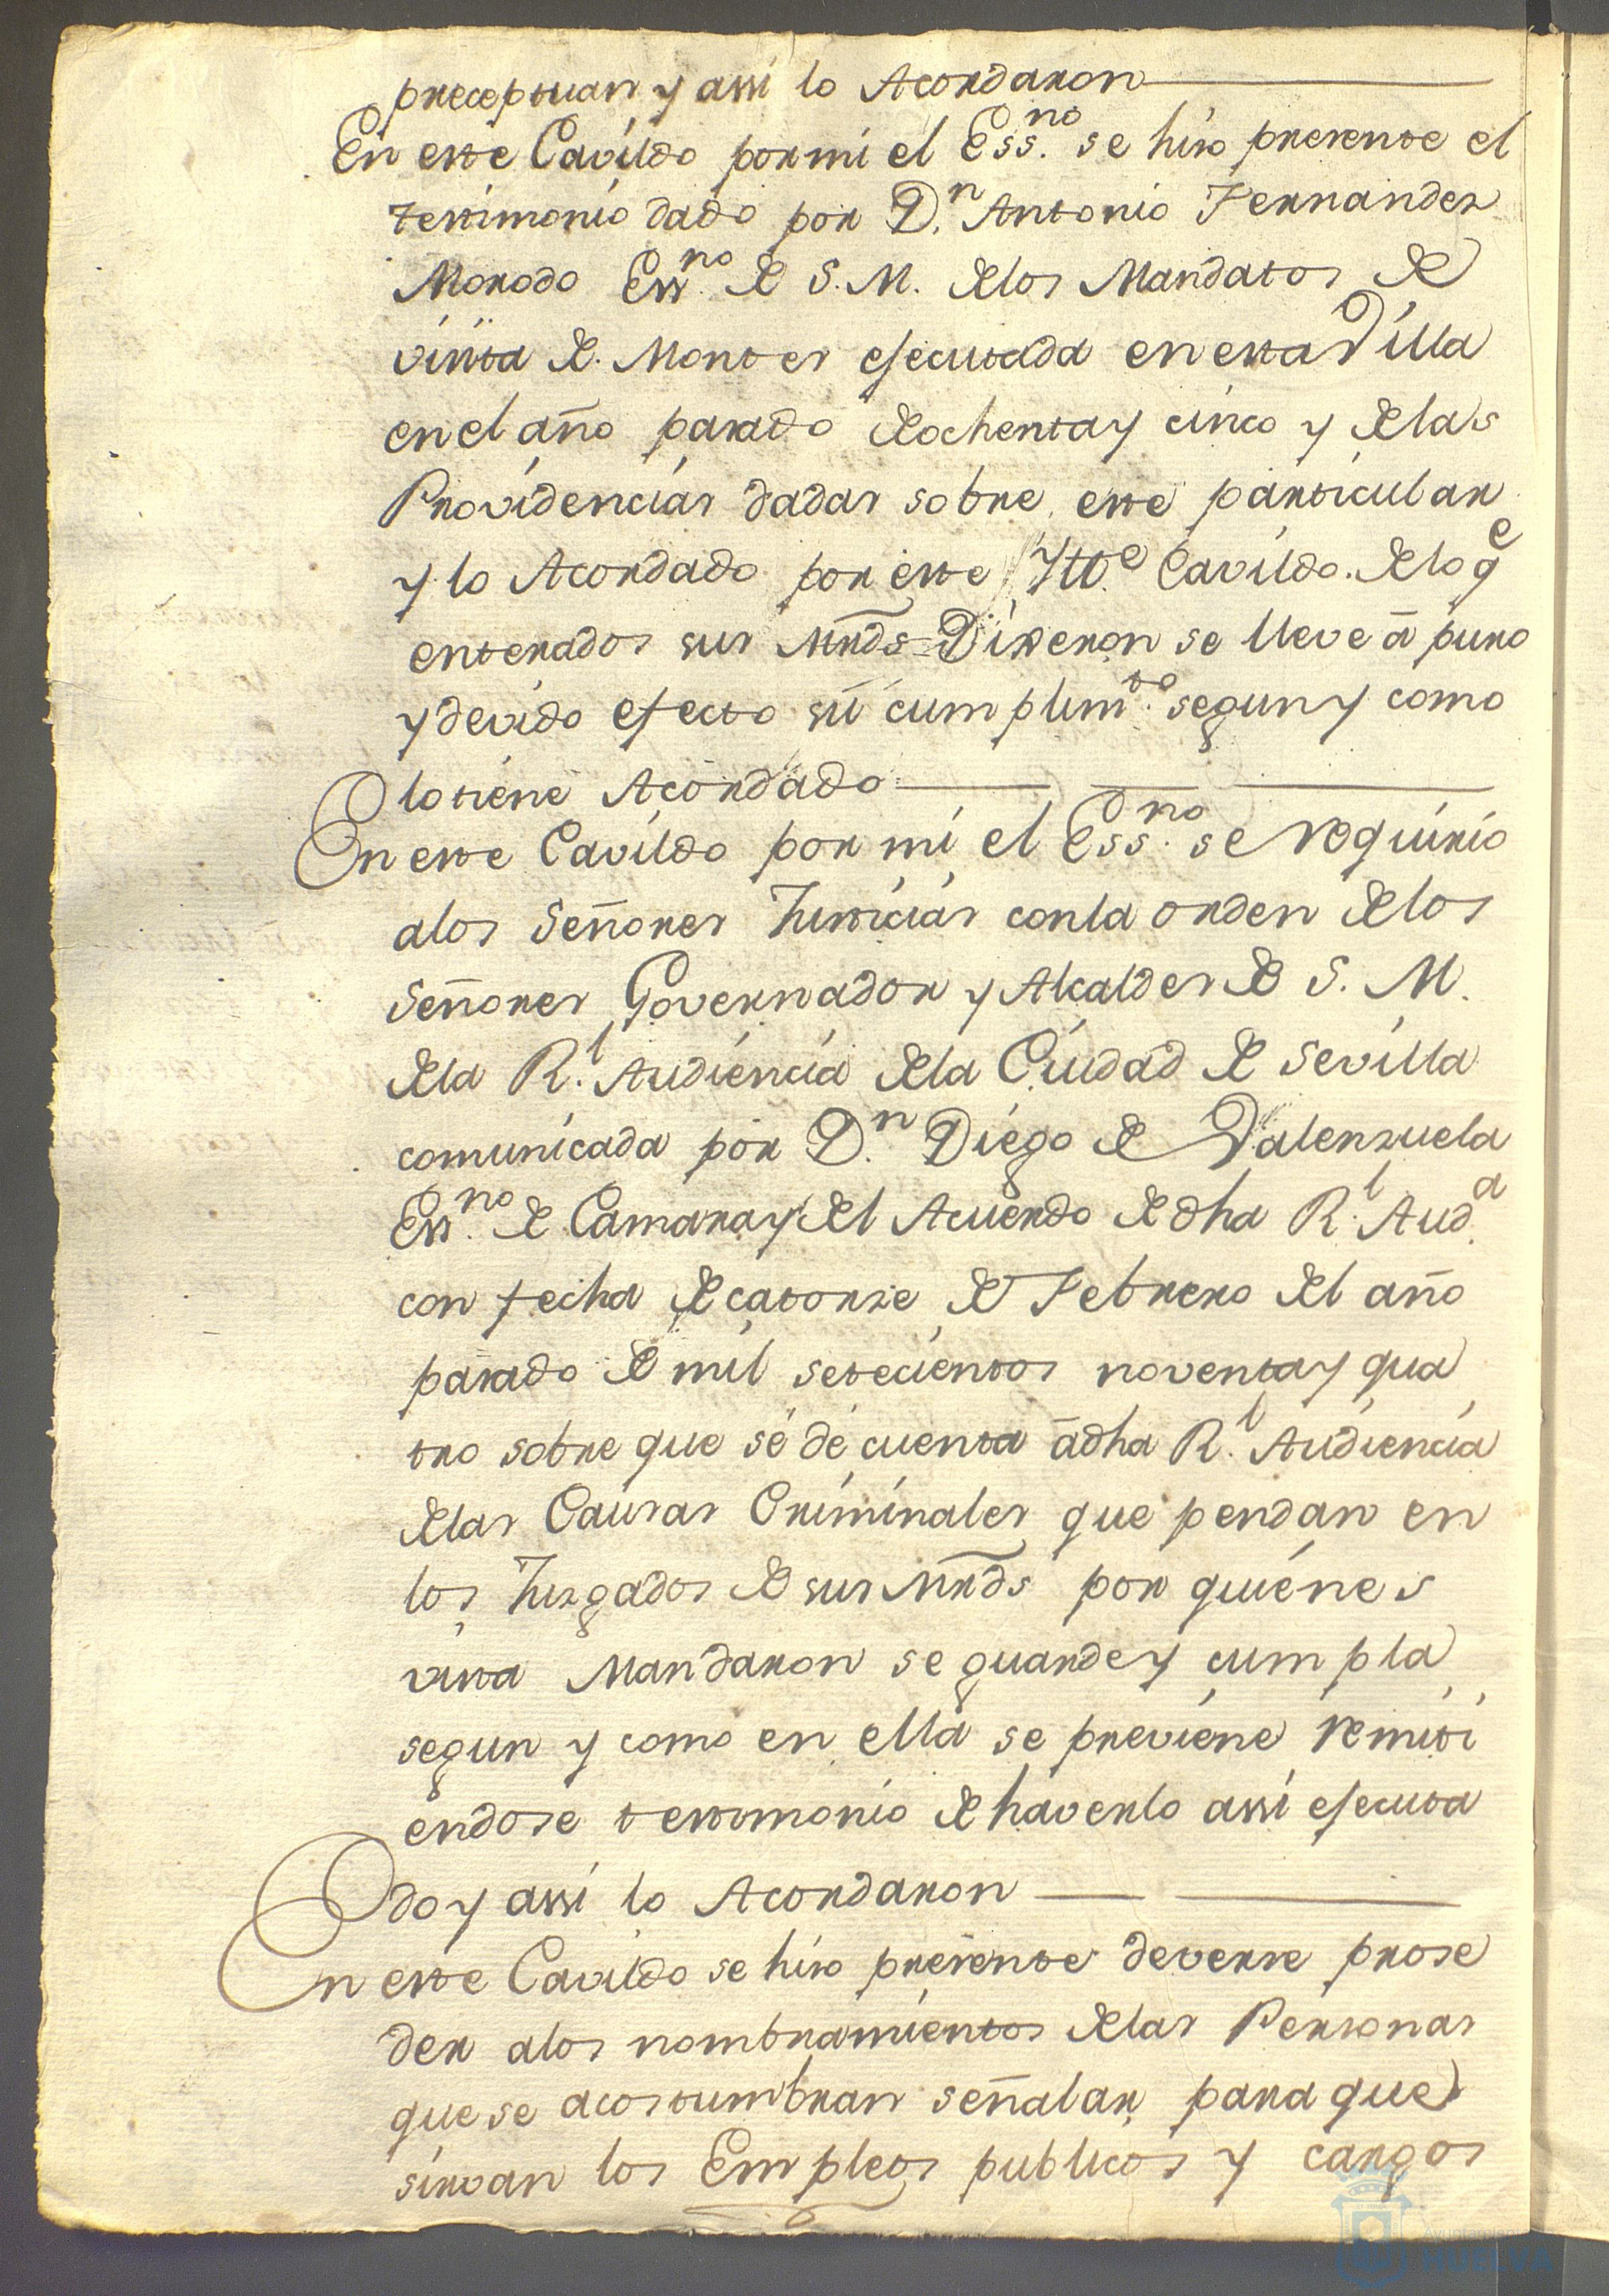 preceptuan y assi lo Acordaron
En este Cavildo por mi el Ess.no se hiso presente el
testimonio dado por D.n Antonio Fernandez
Morodo Ess.no de S. M. de los Mandatos de
visita de Montes ejecutada en esta Villa
en el año pasado de ochenta y cinco y de las
Providencias dadas sobre este particular
y lo Acordado por este Ylt.e Cavildo. de lo q.e
enterados sus Mrds Dixeron se lleve â puro
y devido efecto su cumplim.to segun y como
lo tiene Acordado
En este Cavildo por mi el Ess.no se requirio
a los Señores Justicias con la orden de los
Señores Governador y Alcaldes de S. M.
de la R.l Audiencia de la Ciudad de Sevilla
comunicada por D.n Diego de Valenzuela
Ess.no de Camara y del Acuerdo de dha R.l Aud.a
con fecha de catorze de Febrero del año
pasado de mil setecientos noventa y qua
tro sobre que se dé cuenta â dha R.l Audiencia
de las Causas Criminales que pendan en
los Juzgados de sus Mrds por quienes
vista Mandaron se guarde y cumpla
segun y como en ella se previene remiti
endose testimonio de haverlo assi ejecuta
do y assi lo Acordaron
En este Cavildo se hiso presente deverse prose
der a los nombramientos de las Personas
que se acostumbran señalar para que
sirvan los Empleos publicos y cargos
HUELVA